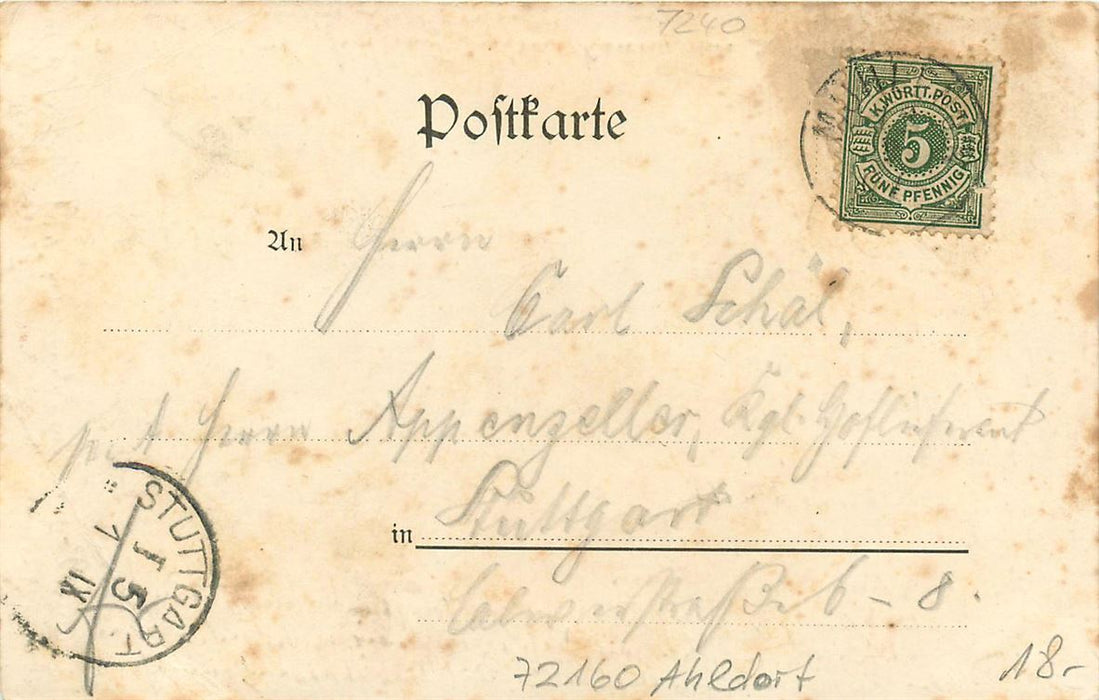 7240
Postkarte
K. WÜRTT. POST
5
FÜNF PFENNIG
An Herrn
Carl Schäl,
Herrn Appenzeller, Kgl. Hoflieferant
in Stuttgart
6-8.
STUTTGART
I
5
IX
72160 Ahldorf
18.-